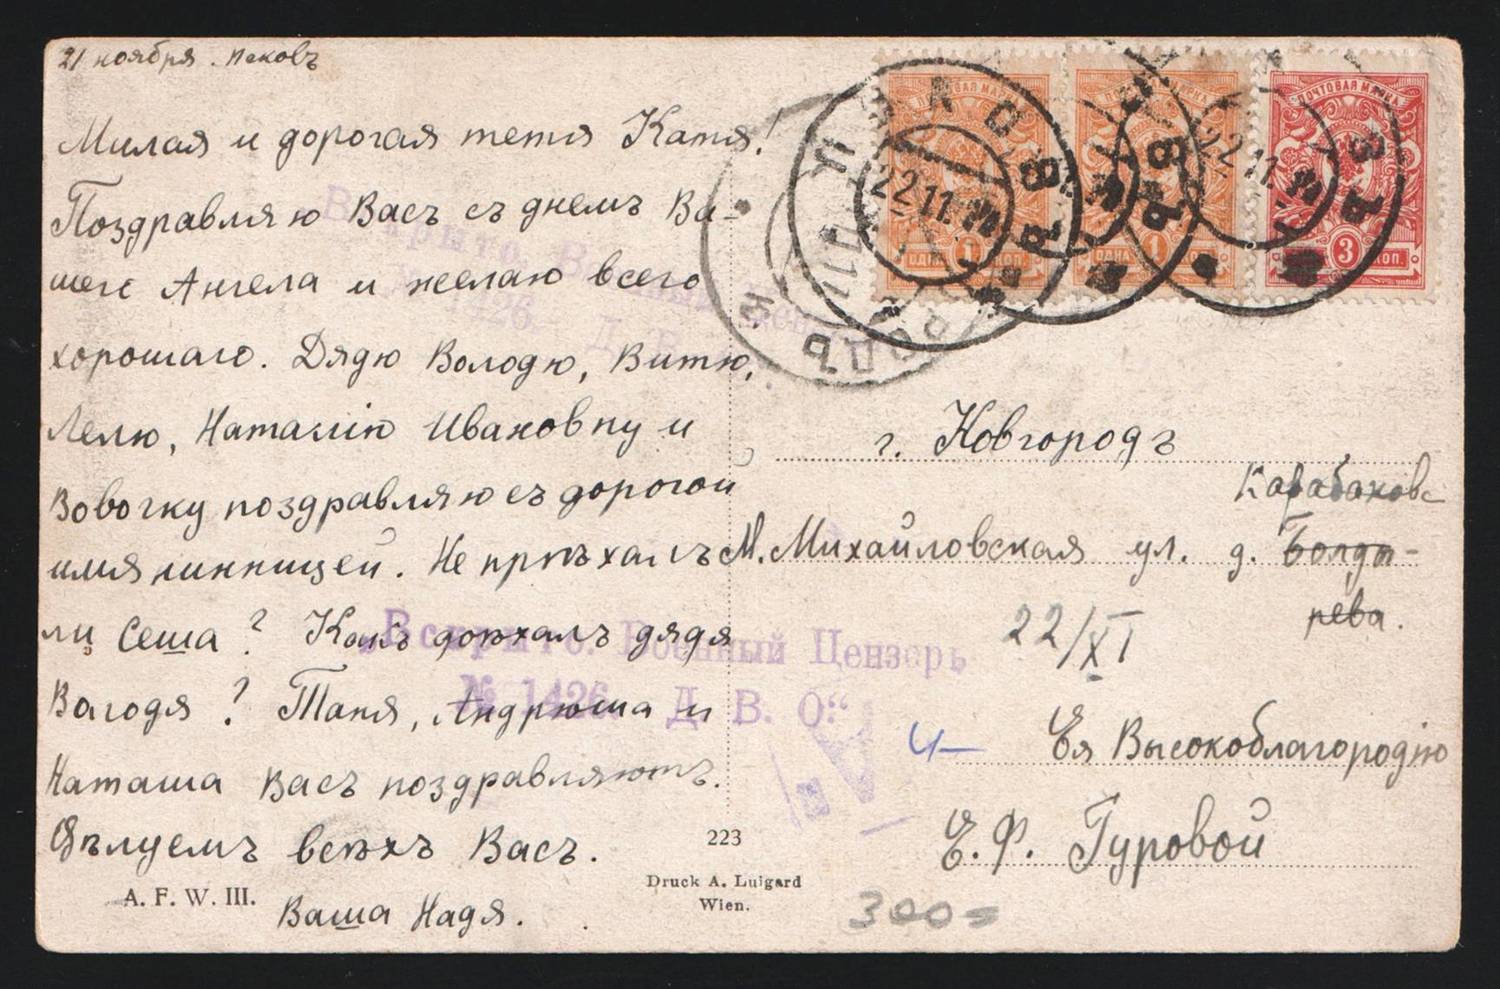 21 ноября. Псковъ
Милая и дорогая тетя Катя!
Поздравляю Васъ съ днемъ Ва-
шего Ангела и желаю всего
хорошаго. Дядю Володю, Витю,
Лелю, Наталію Ивановну и
Вовочку поздравляю съ дорогой
имянинницей. Не пріѣхалъ
ли Сеша? Какъ доѣхалъ дядя
Вологдя? Таня, Андрюша и
Наташа Васъ поздравляютъ.
Цѣлуемъ всѣхъ Васъ.
Ваша Надя.
A. F. W. III.
223
Druck A. Luigard
Wien.
ПОЧТОВАЯ МАРКА
ОДНА 1 КОП.
ПОЧТОВАЯ МАРКА
ОДНА 1 КОП.
ПОЧТОВАЯ МАРКА
3 КОП.
ПСКОВЪ
22 11
г. Новгородъ
М. Михайловская ул. д. Болды-
рева.
22/XI
Ея Высокоблагородію
Е. Ф. Гуровой
Вскрыто. Военный Цензоръ
№ 1426. Д. В. О."
300=